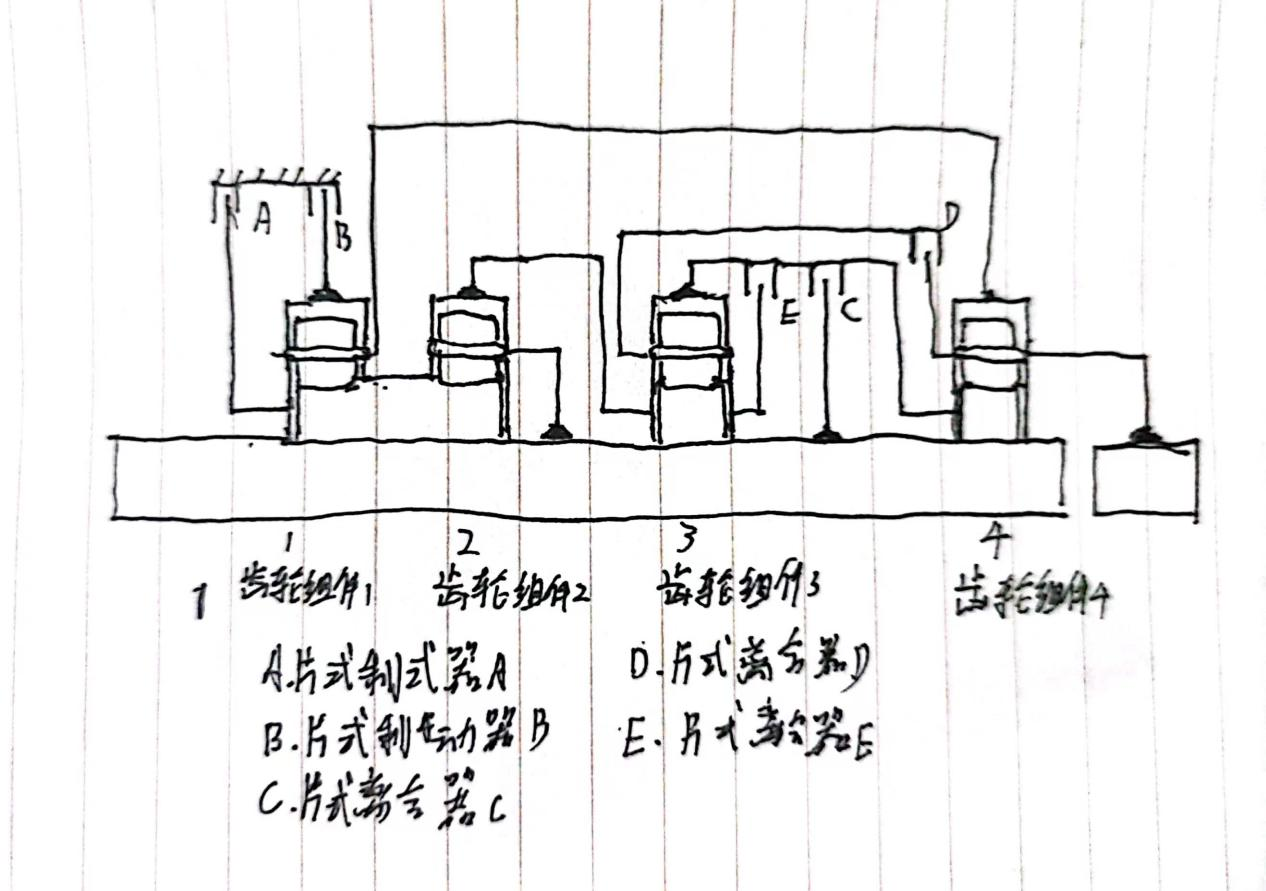 A
B
D
E C
1 2 3 4
1 齿轮组件1 齿轮组件2 齿轮组件3 齿轮组件4
A.片式制式器A D.片式离合器D
B.片式制动器B E.片式离合器E
C.片式离合器C